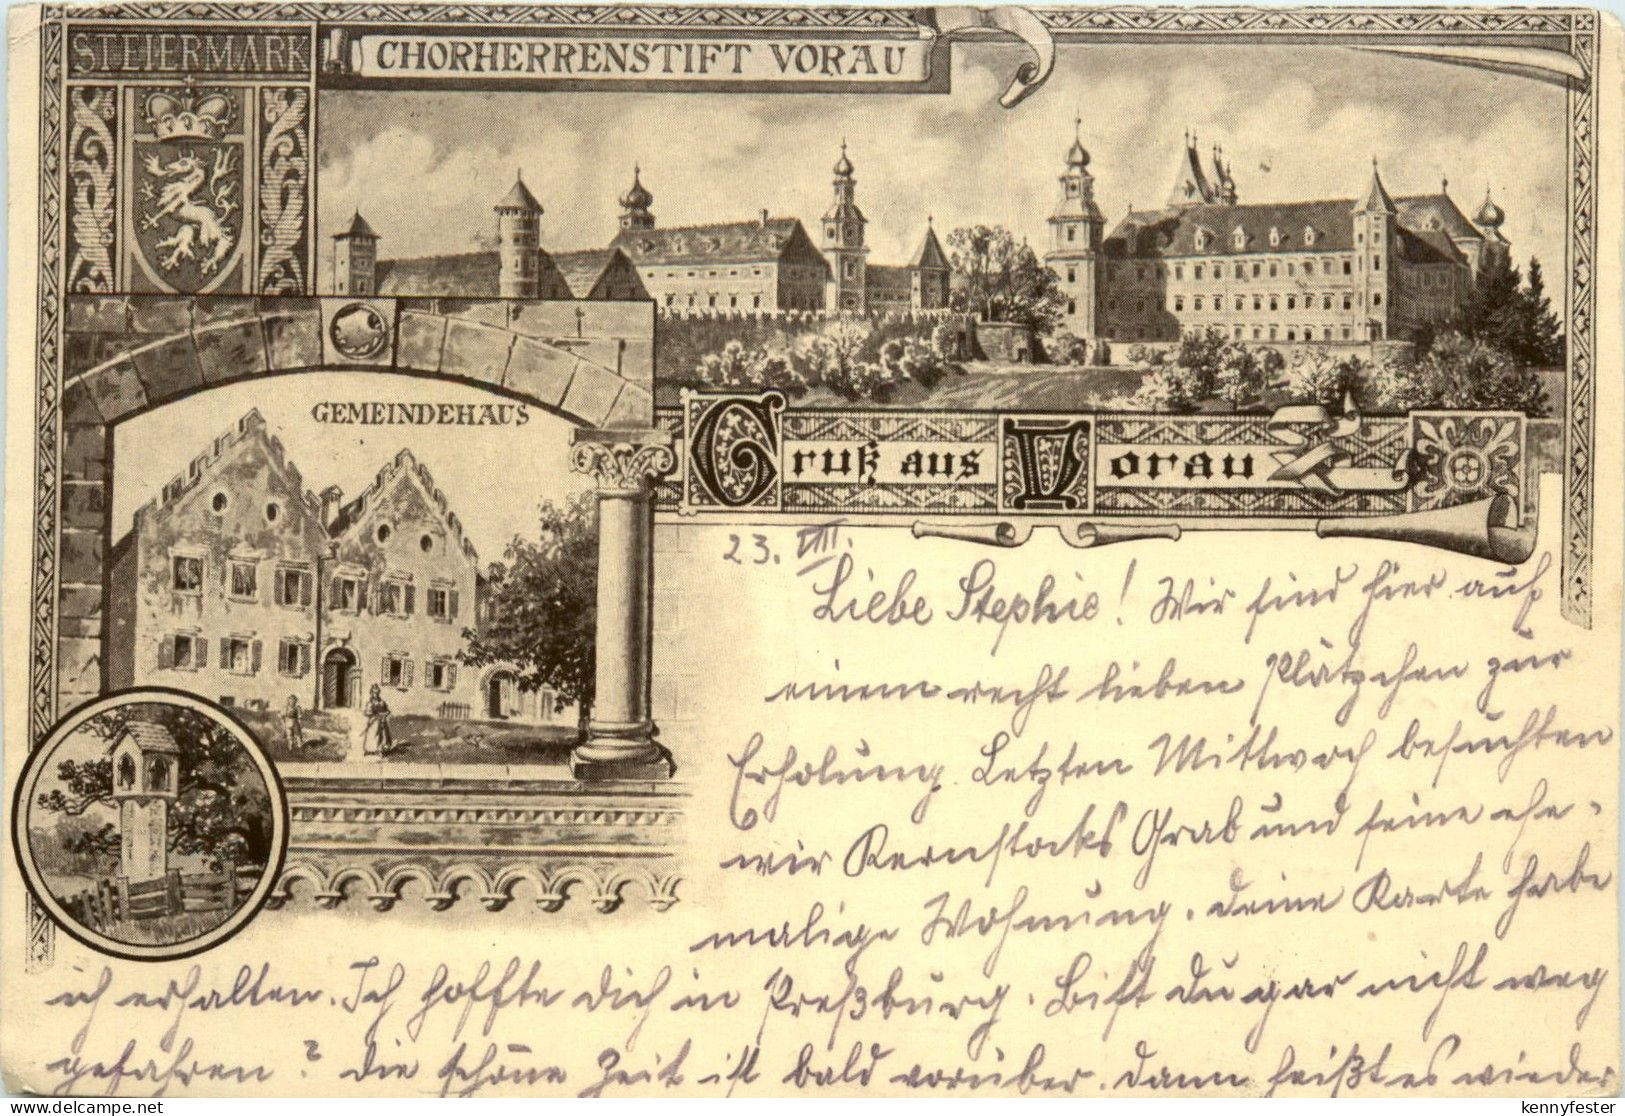 STEIERMARK
CHORHERRENSTIFT VORAU
GEMEINDEHAUS
Gruß aus Vorau
23. VIII.
Liebe Stephie! Wir sind hier auf
einem recht lieben Plätzchen zur
Erholung. Letzten Mittwoch besuchten
wir Kernstocks Grab und seine ehe-
malige Wohnung. Deine Karte habe
ich erhalten. Ich hoffte dich in Preßburg. Bist du gar nicht weg
gefahren? Die schöne Zeit ist bald vorüber. Dann heißt es wieder
kennyfester
delcampe.net